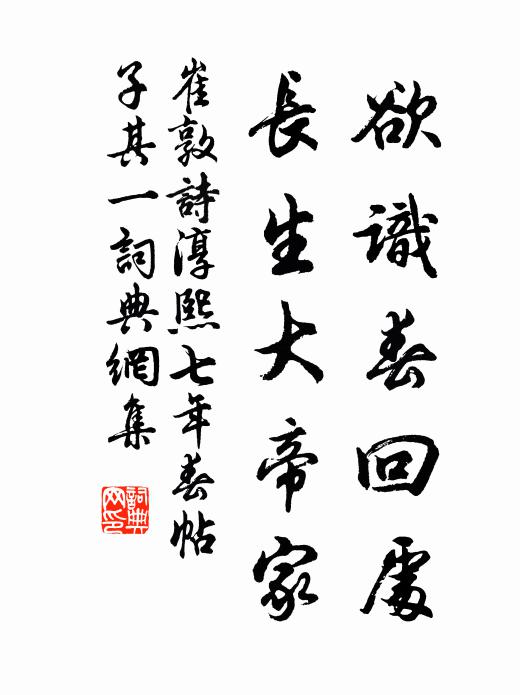 欲識春回處
長生大帝家
崔敦詩淳熙七年春帖
子其一詞典網集
詞典網印